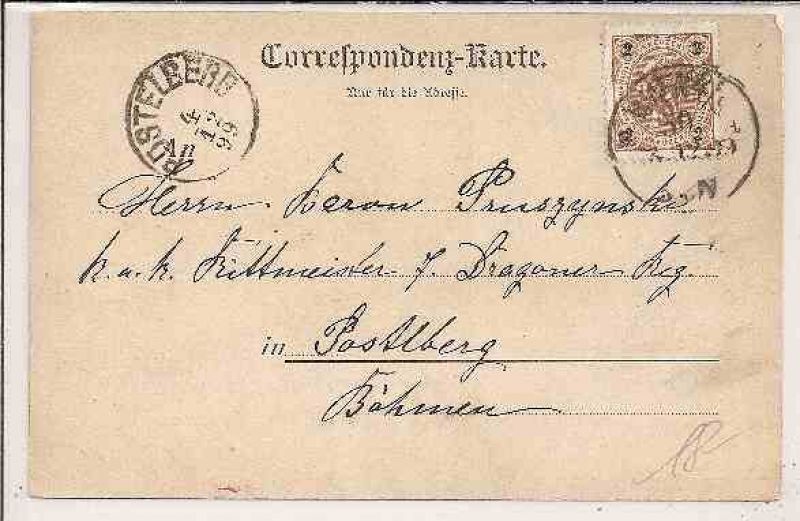 Correspondenz-Karte.
Nur für die Adresse.
2 2
2 2
POSTELBERG
14
99
An
Herrn Baron Pruszynski
k. u. k. Rittmeister 7. Dragoner Reg.
in Postlberg
Böhmen